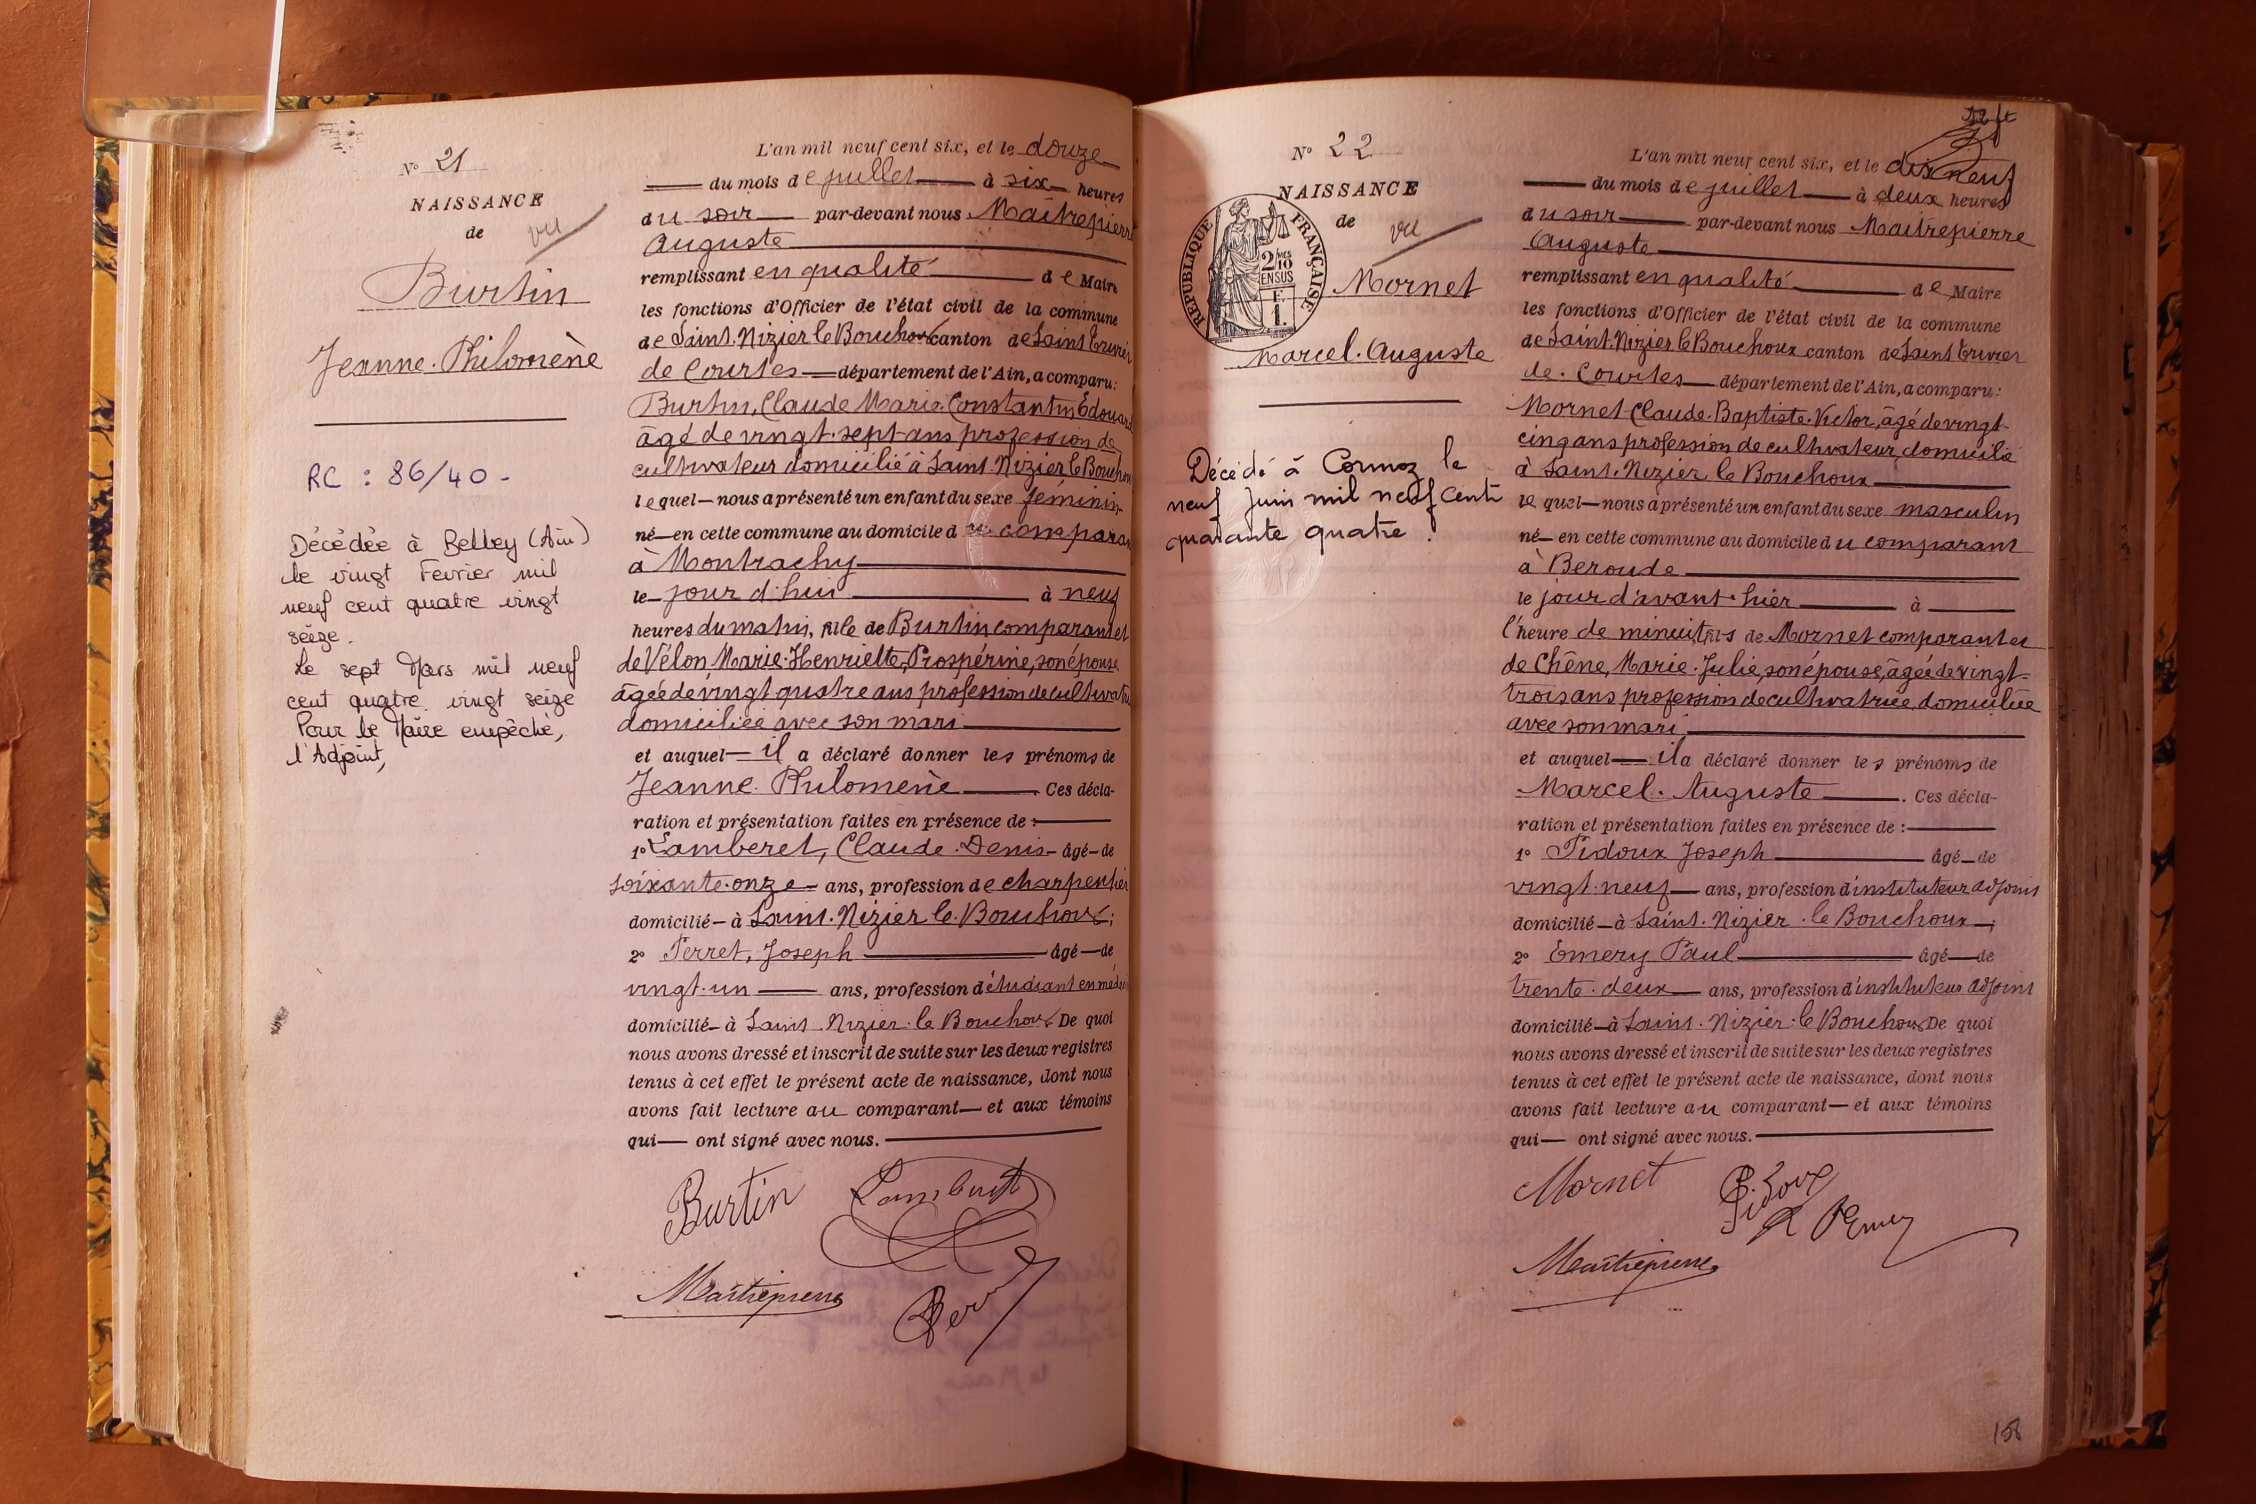 N° 21
NAISSANCE
de
vu
Burtin
Jeanne. Philomène
RC : 86/40 -
Décédée à Belley (Ain)
le vingt Fevrier mil
neuf cent quatre vingt
seize.
Le sept Mars mil neuf
cent quatre vingt seize
Pour le Maire empêché,
l'Adjoint,
L'an mil neuf cent six, et le douze
du mois de juillet à six heures
du soir par-devant nous Maitrepierre
Auguste
remplissant en qualité de Maire
les fonctions d'Officier de l'état civil de la commune
de Saint. Nizier le Bouchoux canton de Saint Trivier
de Courtes département de l'Ain, a comparu:
Burtin, Claude Marie. Constantin Edouard
âgé de vingt. sept ans profession de
cultivateur domicilié à Saint. Nizier le Bouchoux
lequel nous a présenté un enfant du sexe féminin
né en cette commune au domicile du comparant
à Montrachy
le jour d'hui à neuf
heures du matin, fille de Burtin comparant et
de Vélon, Marie. Henriette, Prospérine, son épouse
âgée de vingt quatre ans profession de cultivatrice
domiciliée avec son mari
et auquel il a déclaré donner les prénoms de
Jeanne. Philomène. Ces décla-
ration et présentation faites en présence de :
1° Lamberet, Claude. Denis âgé de
soixante. onze ans, profession de charpentier
domicilié à Saint. Nizier le. Bouchoux;
2° Perret, Joseph âgé de
vingt. un ans, profession d'étudiant en méde
domicilié à Saint. Nizier. le Bouchoux. De quoi
nous avons dressé et inscrit de suite sur les deux registres
tenus à cet effet le présent acte de naissance, dont nous
avons fait lecture au comparant et aux témoins
qui ont signé avec nous.
Burtin Lamberet
Maitrepierre
N° 22
NAISSANCE
de
vu
REPUBLIQUE FRANÇAISE
2 /10
EN SUS
Mornet
Marcel. Auguste
Décédé à Cormoz le
neuf Juin mil neuf cent
quarante quatre.
L'an mil neuf cent six, et le dix neuf
du mois de juillet à deux heures
du soir par-devant nous Maitrepierre
Auguste
remplissant en qualité de Maire
les fonctions d'Officier de l'état civil de la commune
de Saint. Nizier le Bouchoux canton de Saint Trivier
de. Courtes département de l'Ain, a comparu:
Mornet Claude. Baptiste. Victor, âgé de vingt
cinq ans profession de cultivateur domicilié
à Saint. Nizier le Bouchoux
lequel nous a présenté un enfant du sexe masculin
né en cette commune au domicile du comparant
à Beroude
le jour d'avant. hier à
l'heure de minuit, fils de Mornet comparant et
de Chêne, Marie. Julie, son épouse, âgée de vingt-
trois ans profession de cultivatrice domiciliée
avec son mari
et auquel il a déclaré donner les prénoms de
Marcel. Auguste. Ces décla-
ration et présentation faites en présence de :
1° Pidoux Joseph âgé de
vingt. neuf ans, profession d'instituteur adjoint
domicilié à Saint. Nizier. le Bouchoux;
2° Emery Paul âgé de
trente. deux ans, profession d'instituteur adjoint
domicilié à Saint. Nizier. le Bouchoux. De quoi
nous avons dressé et inscrit de suite sur les deux registres
tenus à cet effet le présent acte de naissance, dont nous
avons fait lecture au comparant et aux témoins
qui ont signé avec nous.
Mornet Pidoux
P Emery
Maitrepierre
158